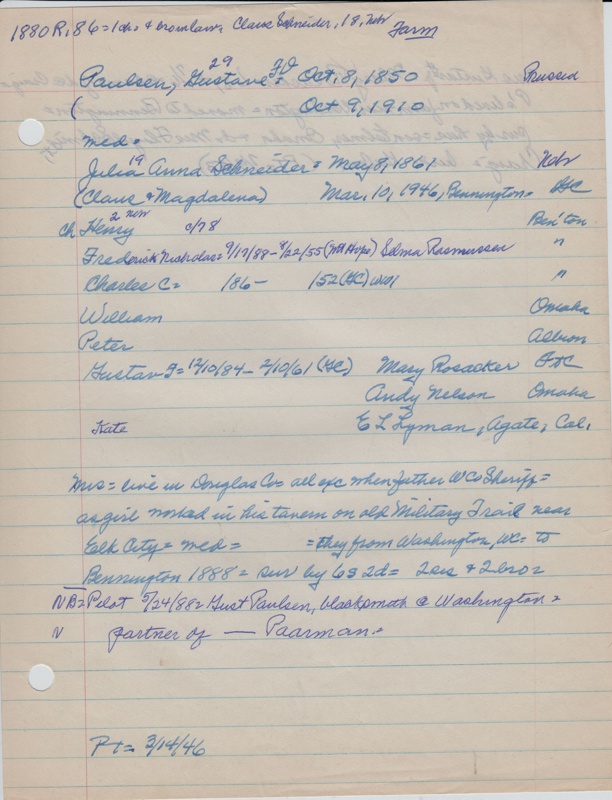 1880 R, 86 = 1 da. & brom law, Claus Schneider, 18, Neb Farm
29
Paulsen, Gustave F J = Oct. 8, 1850 Prussia
( Oct 9, 1910
med =
19
Julia Anna Schneider = May 8, 1861 Neb
(Claus & Magdalena) Mar, 10, 1946, Bennington =
2 Neb
ch Henry c/78 Ben'ton
Frederick Nicholas = 9/17/88 - 8/22/55 (Mt Hope) Selma Rasmussen "
Charles C = 186 - 152 (FC) WWI "
William Omaha
Peter Albion
Gustav J = 12/10/84 - 2/10/61 (FC) Mary Rosacker
Andy Nelson Omaha
Kate E L Lyman, Agate, Cal,
Mrs = live in Douglas Co = all exc when father W Co Sheriff =
as girl worked in his tavern on old Military Trail near
Elk City = med = = they from Washington, WC = to
Bennington 1888 = sur by 6s 2d = 2sis & 2bro =
NB = Pilot 5/24/88 = Gust Paulsen, blacksmith @ Washington =
N partner of — Paarman =
Pt = 3/14/46